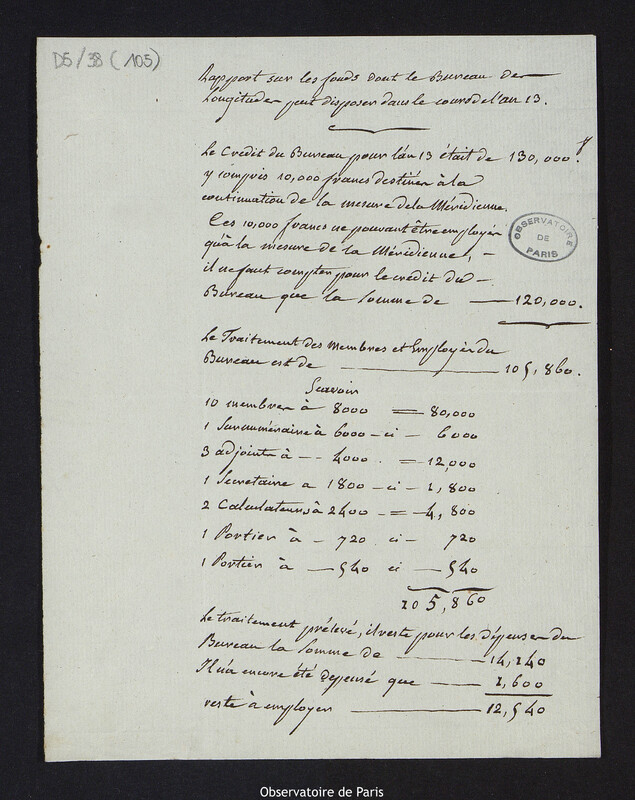 D5/38 (105)
Rapport sur les fonds dont le Bureau des
Longitudes peut disposer dans le cours de l'an 13.
Le Crédit du Bureau pour l'an 13 était de 130,000 f.
y compris 10,000 francs destinés à la
continuation de la mesure de la Méridienne.
Ces 10,000 francs ne pouvant être employés
qu'à la mesure de la Méridienne,
il ne faut compter pour le crédit du
Bureau que la somme de — 120,000.
OBSERVATOIRE
DE
PARIS
Le Traitement des Membres et Employés du
Bureau est de — 105,860.
Scavoir
10 membres à 8000 = 80,000
1 Surnuméraire à 6000 - ci - 6000
3 adjoints à - 4000 . = 12,000
1 Secretaire a 1800 - ci - 1,800
2 Calculateurs à 2400 - = - 4,800
1 Portier à - 720 . ci - 720
1 Portier à - 540 ci - 540
105,860
Le traitement prélevé, il reste pour les dépenses du
Bureau la somme de — 14,140
Il n'a encore été dépensé que — 1,600
reste à employer — 12,540
Observatoire de Paris